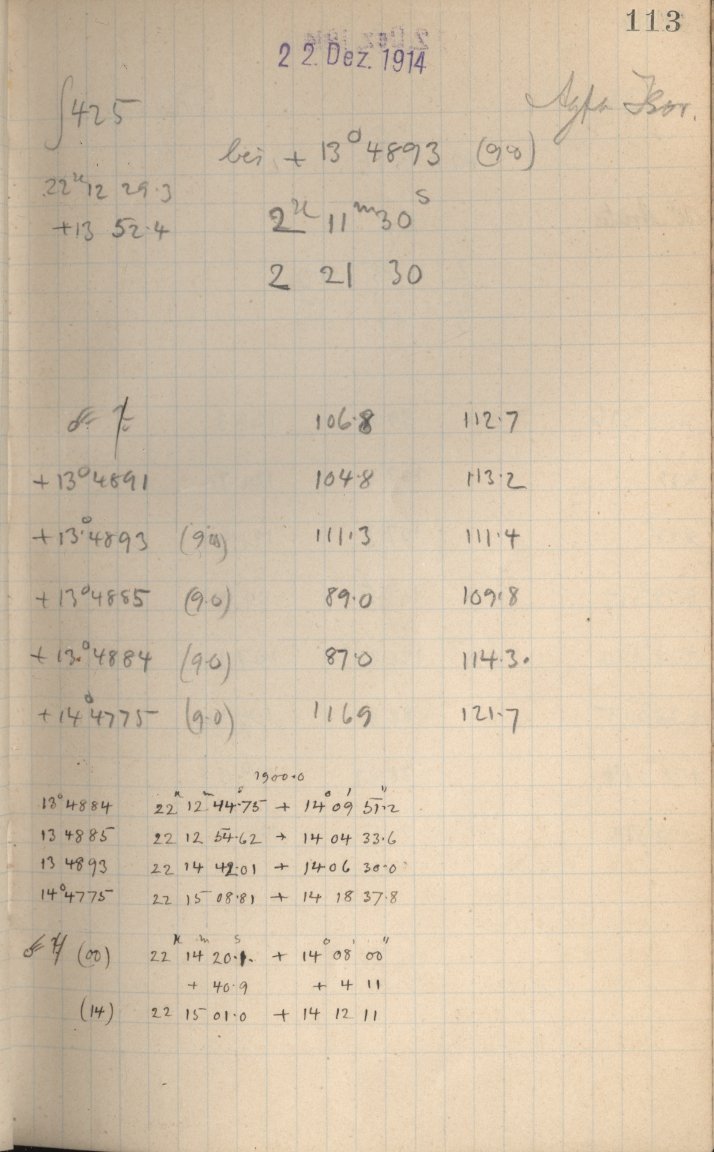 113
22. Dez. 1914
Agfa Isor.
∫425
bei + 13° 4893 (9.0)
22ʰ 12 29.3
+13 52.4
2ʰ 11ᵐ 30ˢ
2 21 30
106.8 112.7
+13° 4891 104.8 113.2
+13° 4893 (9.0) 111.3 111.4
+13° 4885 (9.0) 89.0 109.8
+13° 4884 (9.0) 87.0 114.3
+14° 4775 (9.0) 116.9 121.7
1900.0
13° 4884 22ʰ 12ᵐ 44ˢ.75 + 14° 09' 51".2
13 4885 22 12 54.62 + 14 04 33.6
13 4893 22 14 42.01 + 14 06 30.0
14° 4775 22 15 08.81 + 14 18 37.8
(00) 22ʰ 14ᵐ 20ˢ.1 + 14° 08' 00"
+ 40.9 + 4 11
(14) 22 15 01.0 + 14 12 11